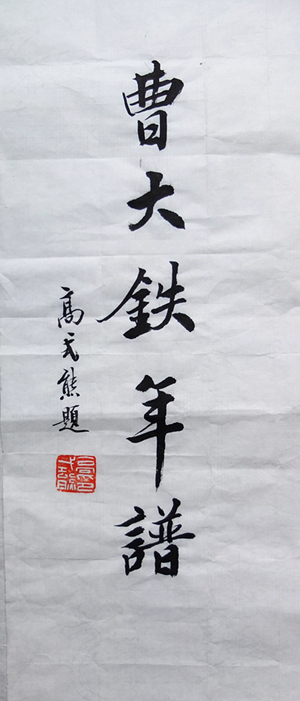 曹大鉄年譜
高式熊題